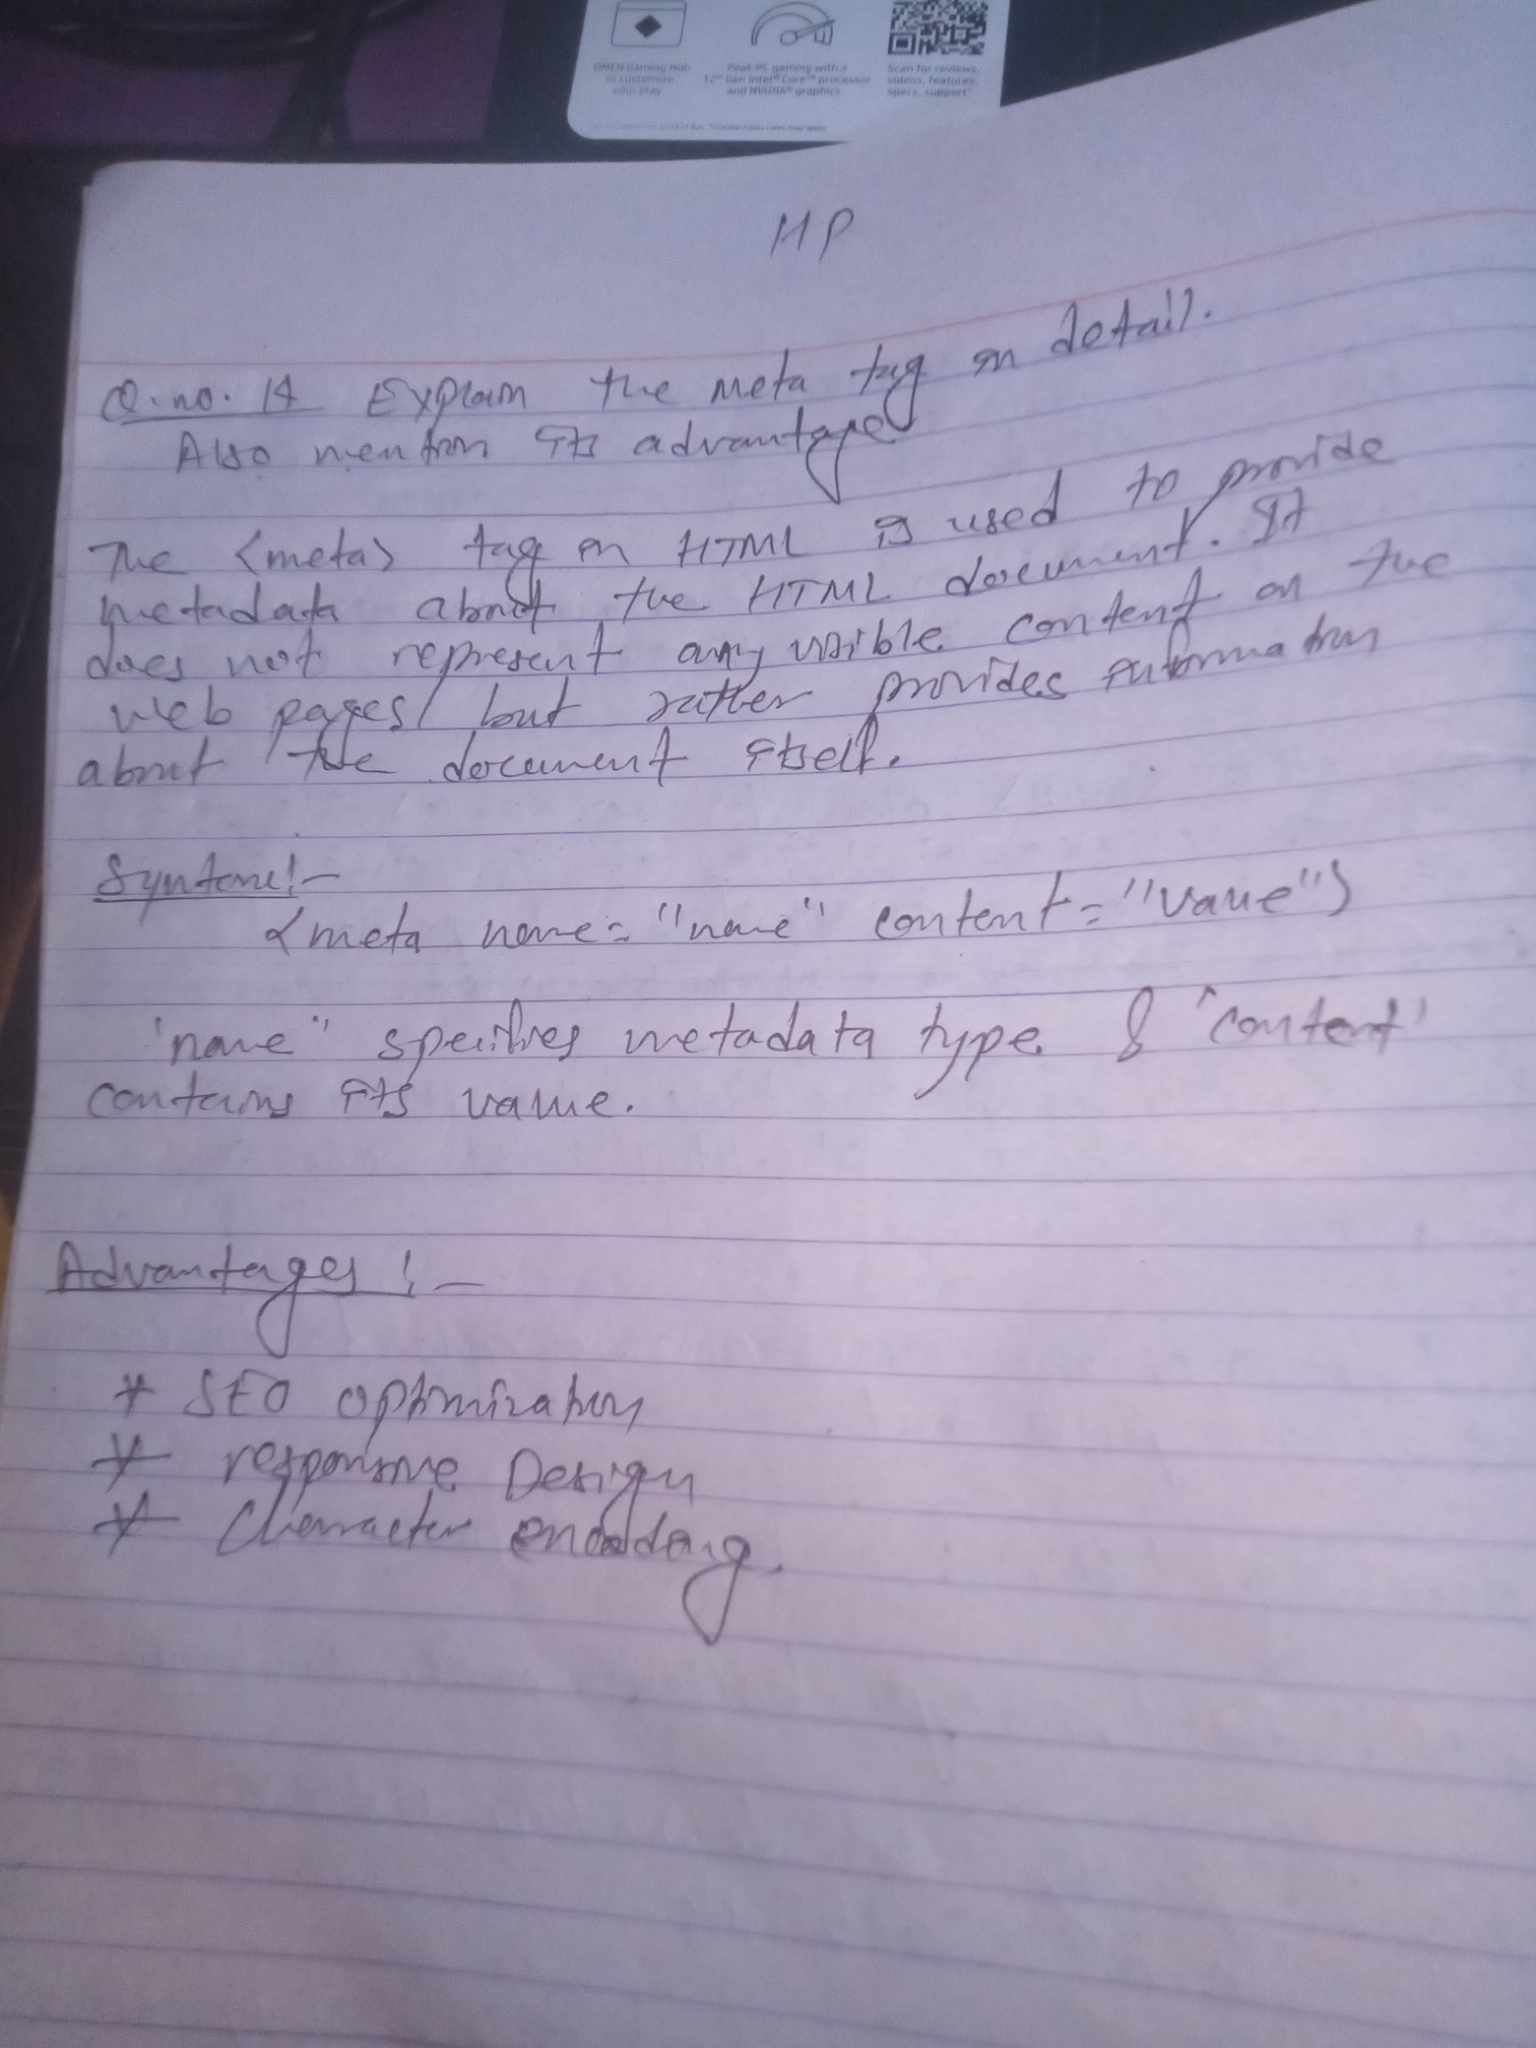 OMEN Gaming Hub
to customize
your play
Peak PC gaming with a
12th Gen Intel® Core™ processor
and NVIDIA® graphics
Scan for reviews,
videos, features,
specs, support
HP
Q.no. 14 Explain the meta tag in detail.
Also mention its advantages
The <meta> tag in HTML is used to provide
metadata about the HTML document. It
does not represent any visible content on the
web pages, but rather provides information
about the document itself.
Syntax:-
<meta name="name" content="value">
'name" specifies metadata type & 'content'
contains its value.
Advantages :-
* SEO optimization
* responsive Design
* Character encoding.